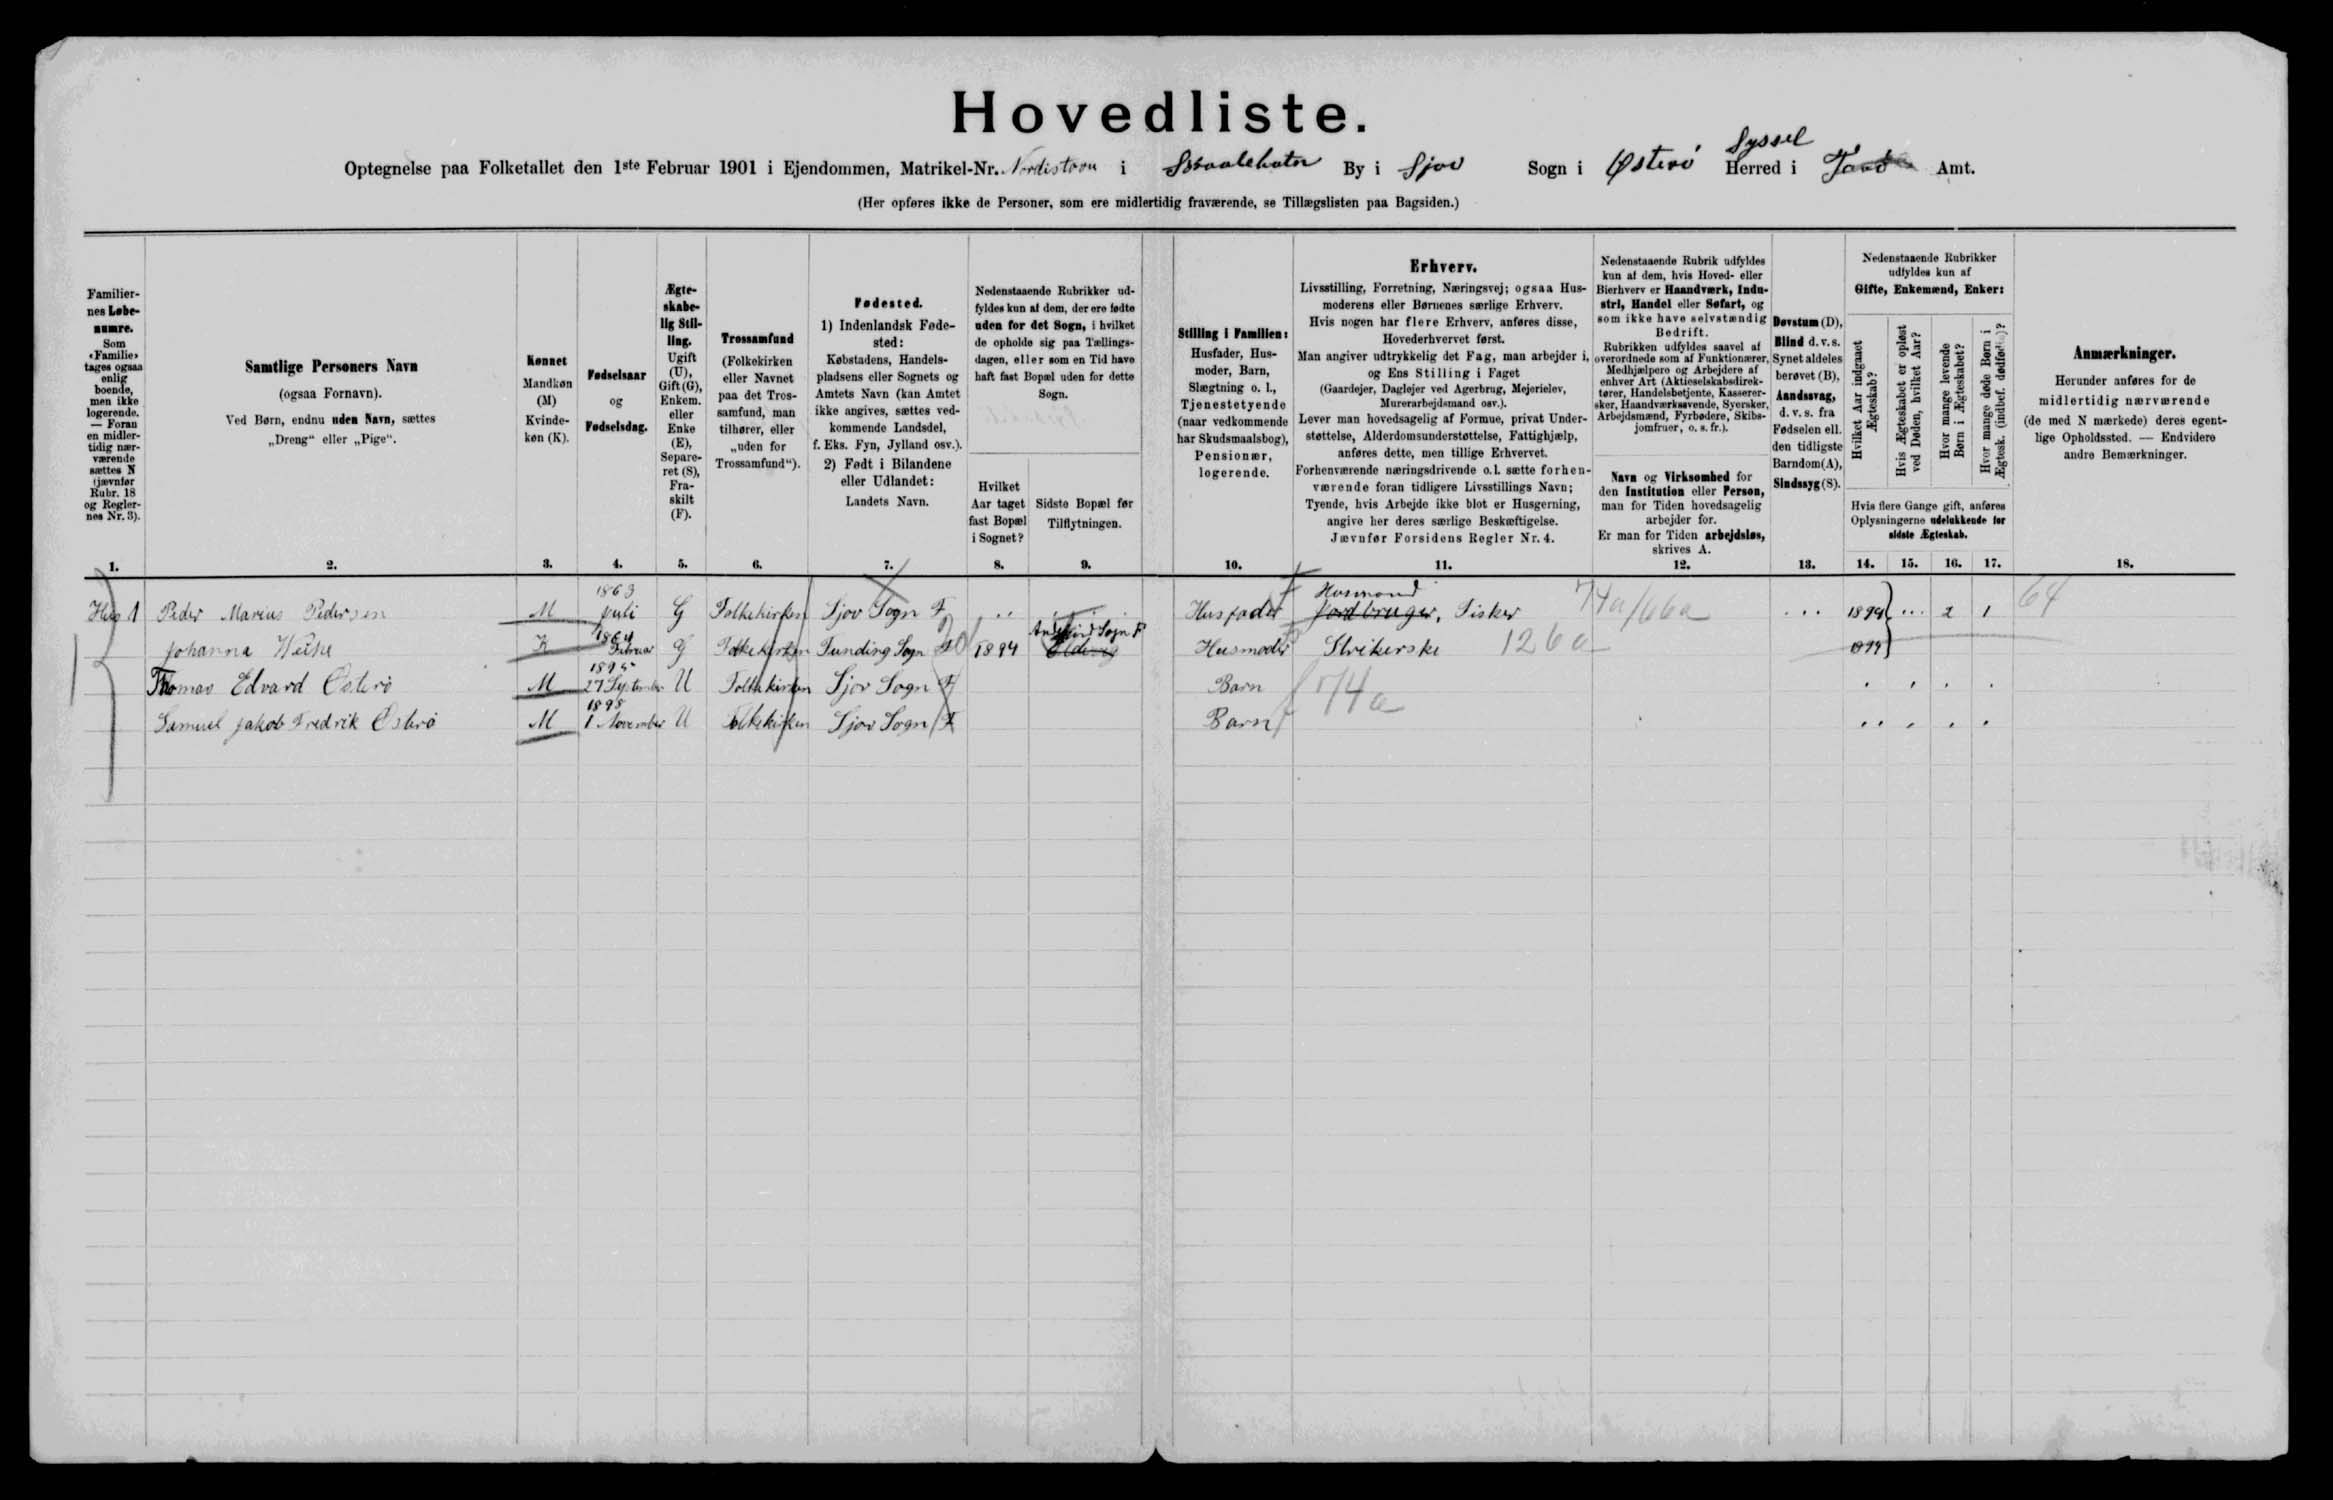 Hovedliste.
Syssel
Optegnelse paa Folketallet den 1ste Februar 1901 i Ejendommen, Matrikel-Nr. i By i Sjov Sogn i Østerö Herred i Amt.
(Her opføres ikke de Personer, som ere midlertidig fraværende, se Tillægslisten paa Bagsiden.)
Familier-
nes Løbe-
numre.
Som
«Familie»
tages ogsaa
enlig
boende,
men ikke
logerende.
— Foran
en midler-
tidig nær-
værende
sættes N
(jævnfør
Rubr. 18
og Regler-
nes Nr. 3).
1.
Samtlige Personers Navn
(ogsaa Fornavn).
Ved Børn, endnu uden Navn, sættes
„Dreng“ eller „Pige“.
2.
Kønnet
Mandkøn
(M)
Kvinde-
køn (K).
3.
Fødselsaar
og
Fødselsdag.
4.
Ægte-
skabe-
lig Stil-
ling.
Ugift
(U),
Gift (G),
Enkem.
eller
Enke
(E),
Separe-
ret (S),
Fra-
skilt
(F).
5.
Trossamfund
(Folkekirken
eller Navnet
paa det Tros-
samfund, man
tilhører, eller
„uden for
Trossamfund“).
6.
Fødested.
1) Indenlandsk Føde-
sted:
Købstadens, Handels-
pladsens eller Sognets og
Amtets Navn (kan Amtet
ikke angives, sættes ved-
kommende Landsdel,
f. Eks. Fyn, Jylland osv.).
2) Født i Bilandene
eller Udlandet:
Landets Navn.
7.
Nedenstaaende Rubrikker ud-
fyldes kun af dem, der ere fødte
uden for det Sogn, i hvilket
de opholde sig paa Tællings-
dagen, eller som en Tid have
haft fast Bopæl uden for dette
Sogn.
Hvilket
Aar taget
fast Bopæl
i Sognet?
8.
Sidste Bopæl før
Tilflytningen.
9.
Stilling i Familien:
Husfader, Hus-
moder, Barn,
Slægtning o. l.,
Tjenestetyende
(naar vedkommende
har Skudsmaalsbog),
Pensionær,
logerende.
10.
Erhverv.
Livsstilling, Forretning, Næringsvej; ogsaa Hus-
moderens eller Børnenes særlige Erhverv.
Hvis nogen har flere Erhverv, anføres disse,
Hovederhvervet først.
Man angiver udtrykkelig det Fag, man arbejder i,
og Ens Stilling i Faget
(Gaardejer, Daglejer ved Agerbrug, Mejerielev,
Murerarbejdsmand osv.).
Lever man hovedsagelig af Formue, privat Under-
støttelse, Alderdomsunderstøttelse, Fattighjælp,
anføres dette, men tillige Erhvervet.
Forhenværende næringsdrivende o. l. sætte forhen-
værende foran tidligere Livsstillings Navn;
Tyende, hvis Arbejde ikke blot er Husgerning,
angive her deres særlige Beskæftigelse.
Jævnfør Forsidens Regler Nr. 4.
11.
Nedenstaaende Rubrik udfyldes
kun af dem, hvis Hoved- eller
Bierhverv er Haandværk, Indu-
stri, Handel eller Søfart, og
som ikke have selvstændig
Bedrift.
Rubrikken udfyldes saavel af
overordnede som af Funktionærer,
Medhjælpere og Arbejdere af
enhver Art (Aktieselskabsdirek-
tører, Handelsbetjente, Kasserer-
sker, Haandværkssvende, Syersker,
Arbejdsmænd, Fyrbødere, Skibs-
jomfruer, o. s. fr.).
Navn og Virksomhed for
den Institution eller Person,
man for Tiden hovedsagelig
arbejder for.
Er man for Tiden arbejdsløs,
skrives A.
12.
Døvstum (D),
Blind d. v. s.
Synet aldeles
berøvet (B),
Aandssvag,
d. v. s. fra
Fødselen ell.
den tidligste
Barndom (A),
Sindssyg (S).
13.
Nedenstaaende Rubrikker
udfyldes kun af
Gifte, Enkemænd, Enker:
Hvilket Aar indgaaet
Ægteskab?
Hvis Ægteskabet er opløst
ved Døden, hvilket Aar?
Hvor mange levende
Børn i Ægteskabet?
Hvor mange døde Børn i
Ægtesk. (indbef. dødfødte)?
Hvis flere Gange gift, anføres
Oplysningerne udelukkende for
sidste Ægteskab.
14. 15. 16. 17.
Anmærkninger.
Herunder anføres for de
midlertidig nærværende
(de med N mærkede) deres egent-
lige Opholdssted. — Endvidere
andre Bemærkninger.
18.
1863 Husmand
Hus 1 Peder Marius Pedersen M Juli G Folkekirken Sjov Sogn F Husfader Jordbruger, Fisker 74a/66a 1894 2 1 64
1864
Johanna K Februar G Folkekirken Funding Sogn F 1894 Sogn F Husmoder Strikerske 126a
1895
Thomas Edvard Österö M 27 September U Folkekirken Sjov Sogn F Barn 74a
1898
Samuel Jakob Fredrik Österö M 1 November U Folkekirken Sjov Sogn F Barn